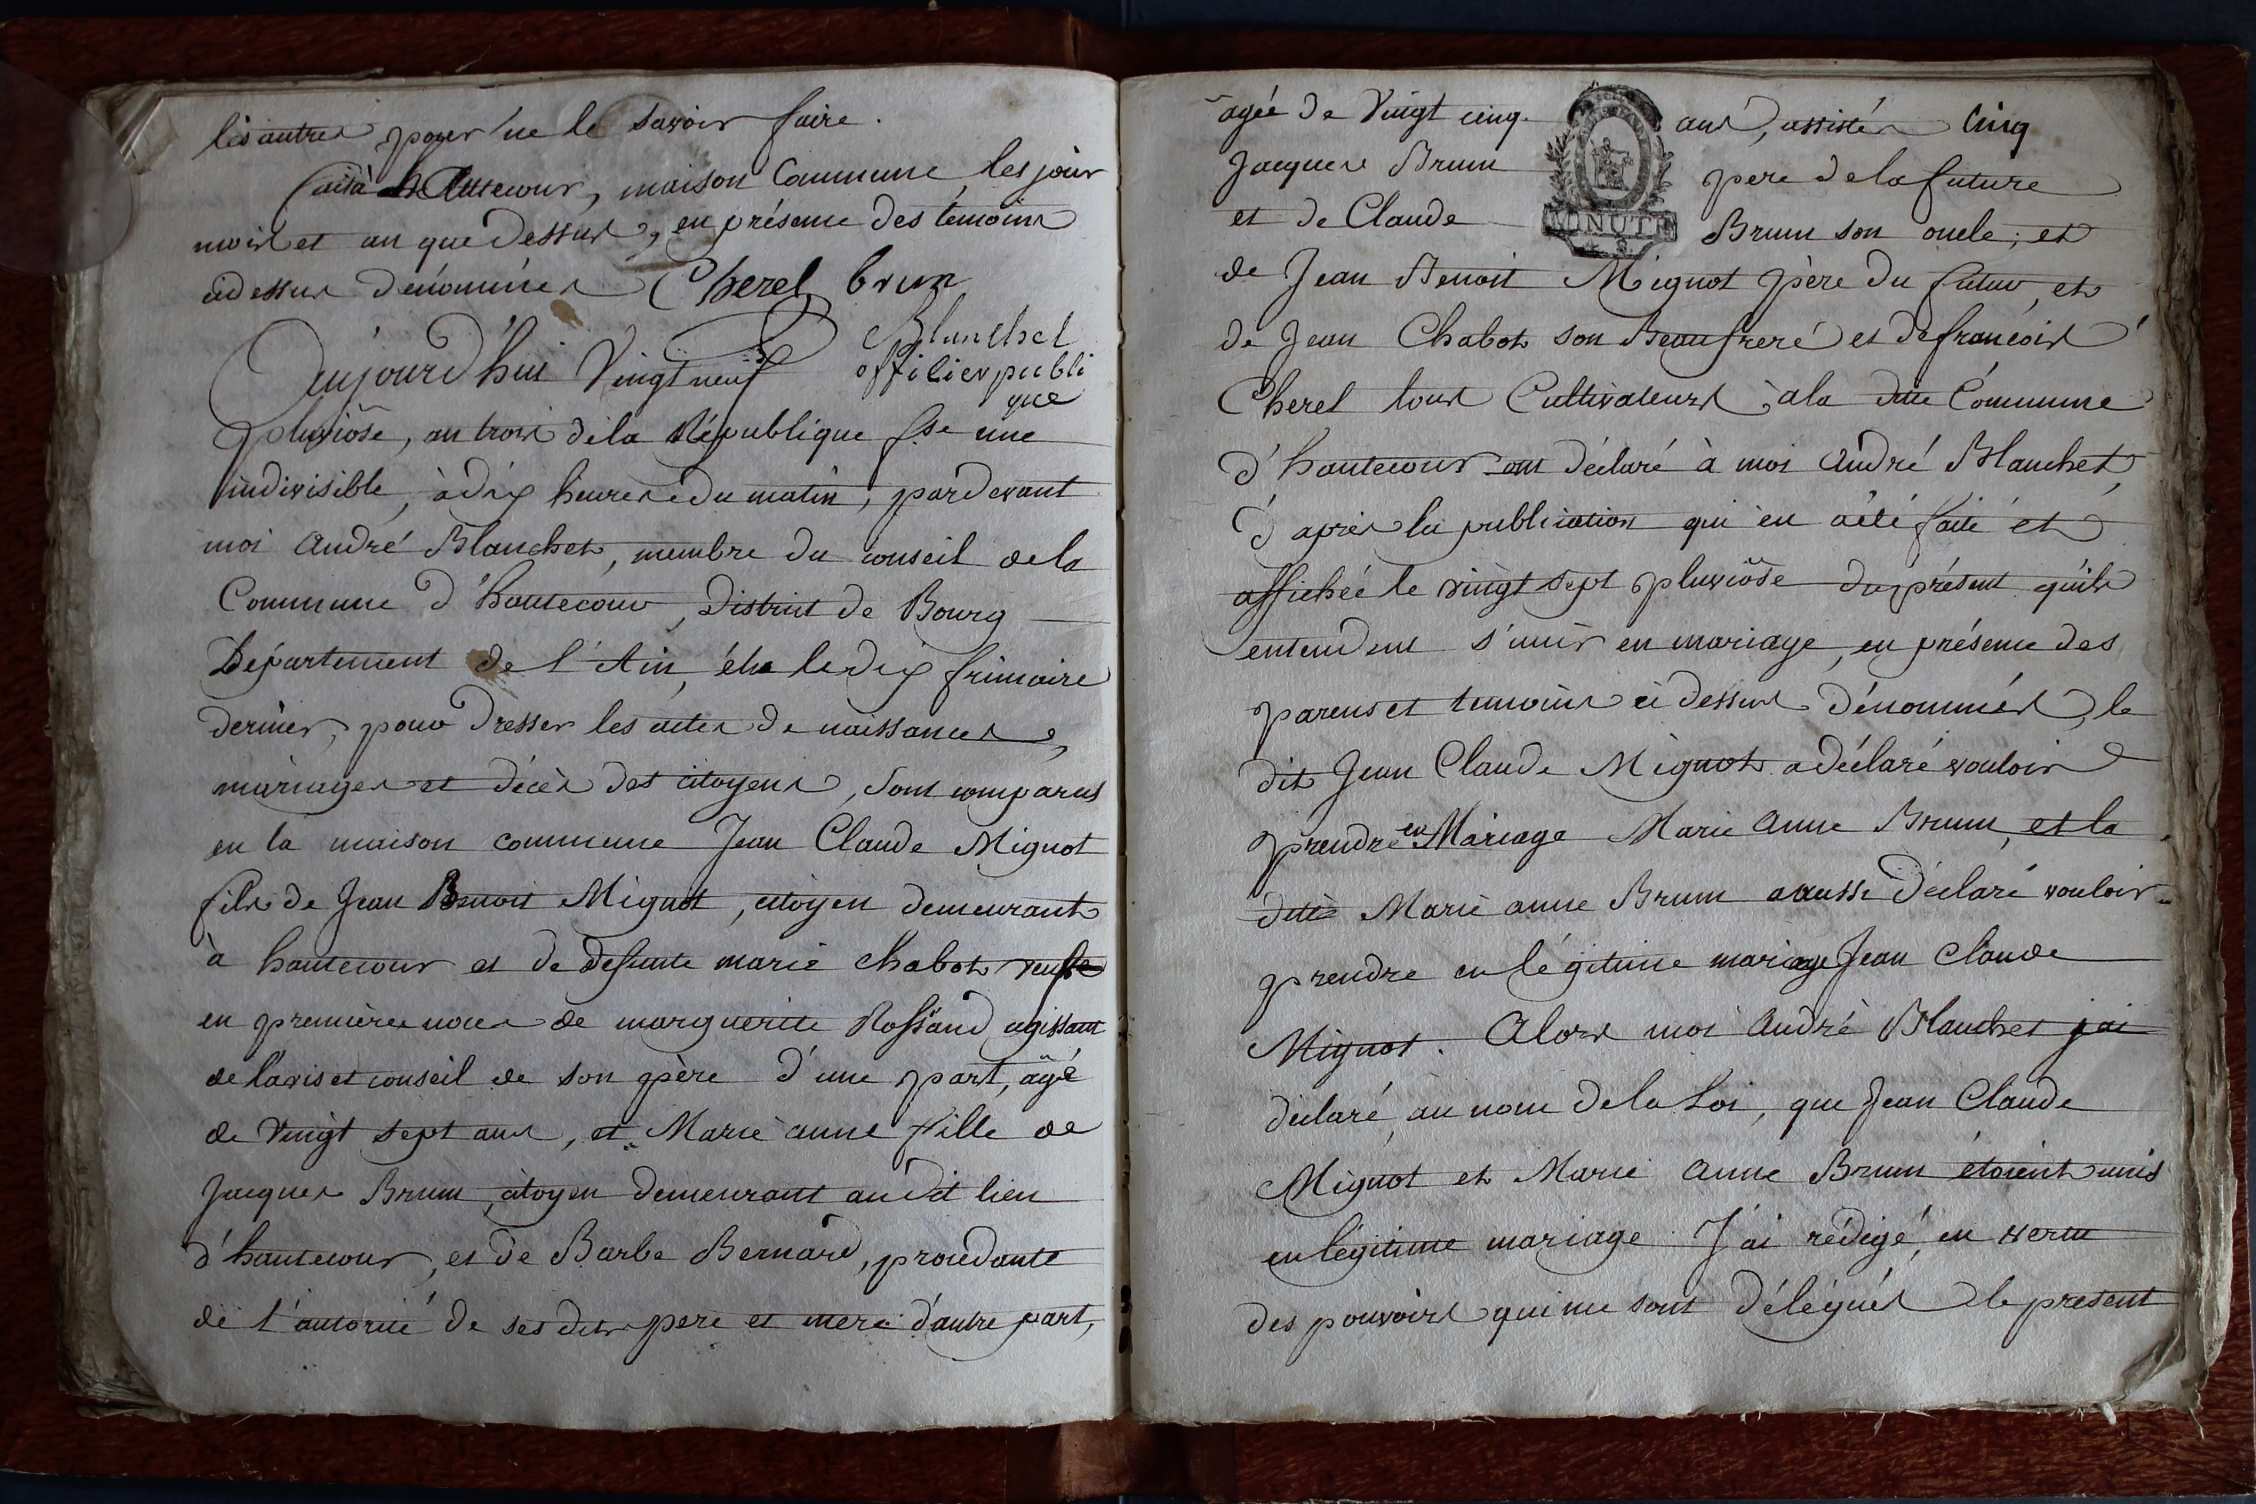 les autres pour ne le savoir faire.
fait à hautecour, maison Commune les jour
mois et an que dessus, en présence des temoins
ci dessus dénommés Cherel brun
Blanchet
Aujourd'hui Vingt neuf officier publi
que
pluviôse, an trois de la République fse une
indivisible, à dix heures du matin, pardevant
moi André Blanchet, membre du conseil de la
Commune d'hautecour, District de Bourg
Département de l'Ain, élu le dix frimaire
dernier, pour dresser les actes de naissances,
mariages et décès des citoyens, sont comparus
en la maison commune Jean Claude Mignot
fils de Jean Benoit Mignot, citoyen demeurant
à hautecour et de defunte marie Chabot,
en première noces de marguerite Rossand agissant
de l'avis et conseil de son père d'une part, agé
de Vingt sept ans, et Marie anne fille de
Jacques Brun, citoyen demeurant au dit lieu
d'hautecour, et de Barbe Bernard, procedante
de l'autorité de ses dits pere et mere d'autre part,
agée de Vingt cinq ans, assistés cinq
Jacques Brun pere de la future
et de Claude MINUTE Brun son oncle; et
de Jean Benoit Mignot père du futur, et
de Jean Chabot son Beaufrere et de françois
Cherel tous Cultivateurs à la dite Commune
d'hautecour ont déclaré à moi André Blanchet,
d'après la publication qui en a été faite et
affichée le vingt sept pluviôse du présent qu'ils
entendent s'unir en mariage, en présence des
parens et temoins ci dessus dénommés, le
dit Jean Claude Mignot a déclaré vouloir
prendre en Mariage Marie Anne Brun, et la
dite Marie anne Brun a aussi déclaré vouloir
prendre en légitime mariage Jean Claude
Mignot. Alors moi André Blanchet j'ai
déclaré au nom de la Loi, que Jean Claude
Mignot et Marie Anne Brun étoient unis
en légitime mariage. J'ai rédigé, en vertu
des pouvoirs qui me sont délégués le present